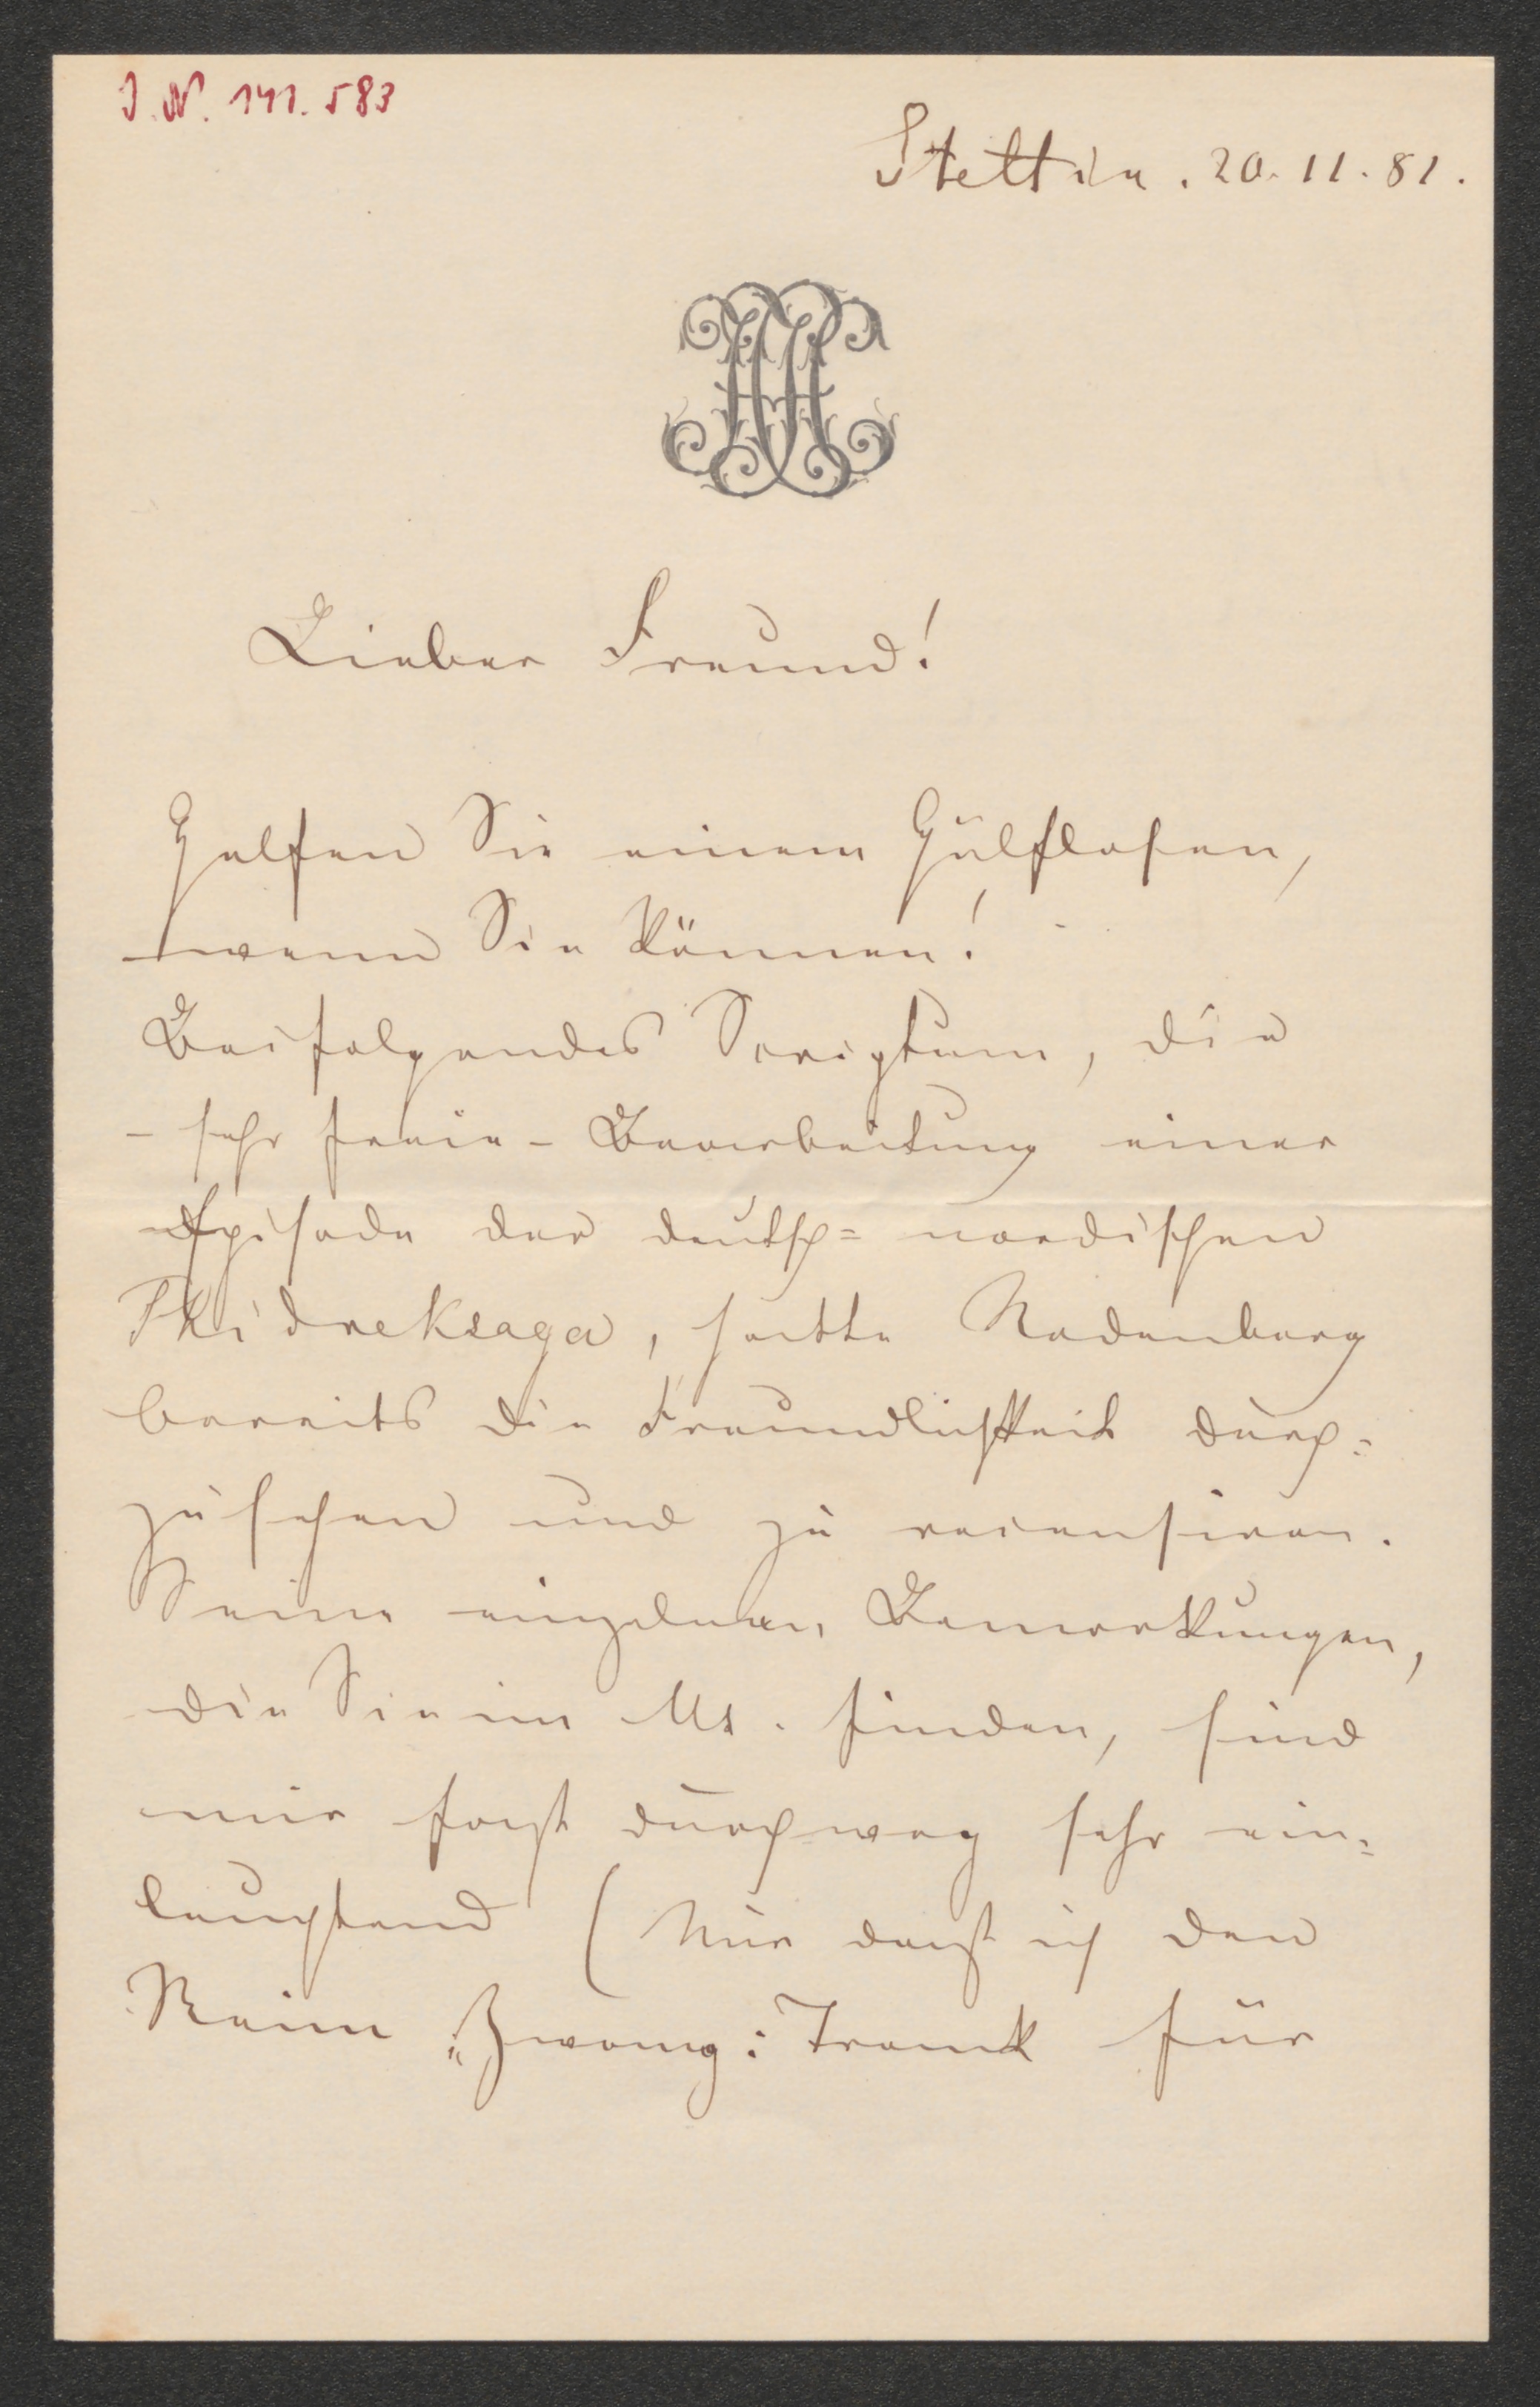 I. N. 141.583
Stettin. 20. 11. 81.
Lieber Freund!
Helfen Sie einem Hülflosen,
wenn Sie können!
Beifolgendes Scriptum, die
– sehr freie – Bearbeitung einer
Episode der deutsch-nordischen
Thidreksaga, hatte Rodenberg
bereits die Freundlichkeit durch-
zusehen und zu recensiren.
Seine einzelnen Bemerkungen,
die Sie im Ms. finden, sind
mir fast durchweg sehr ein-
leuchtend (Nur dacht ich den
Reim „Zwang: Trank für